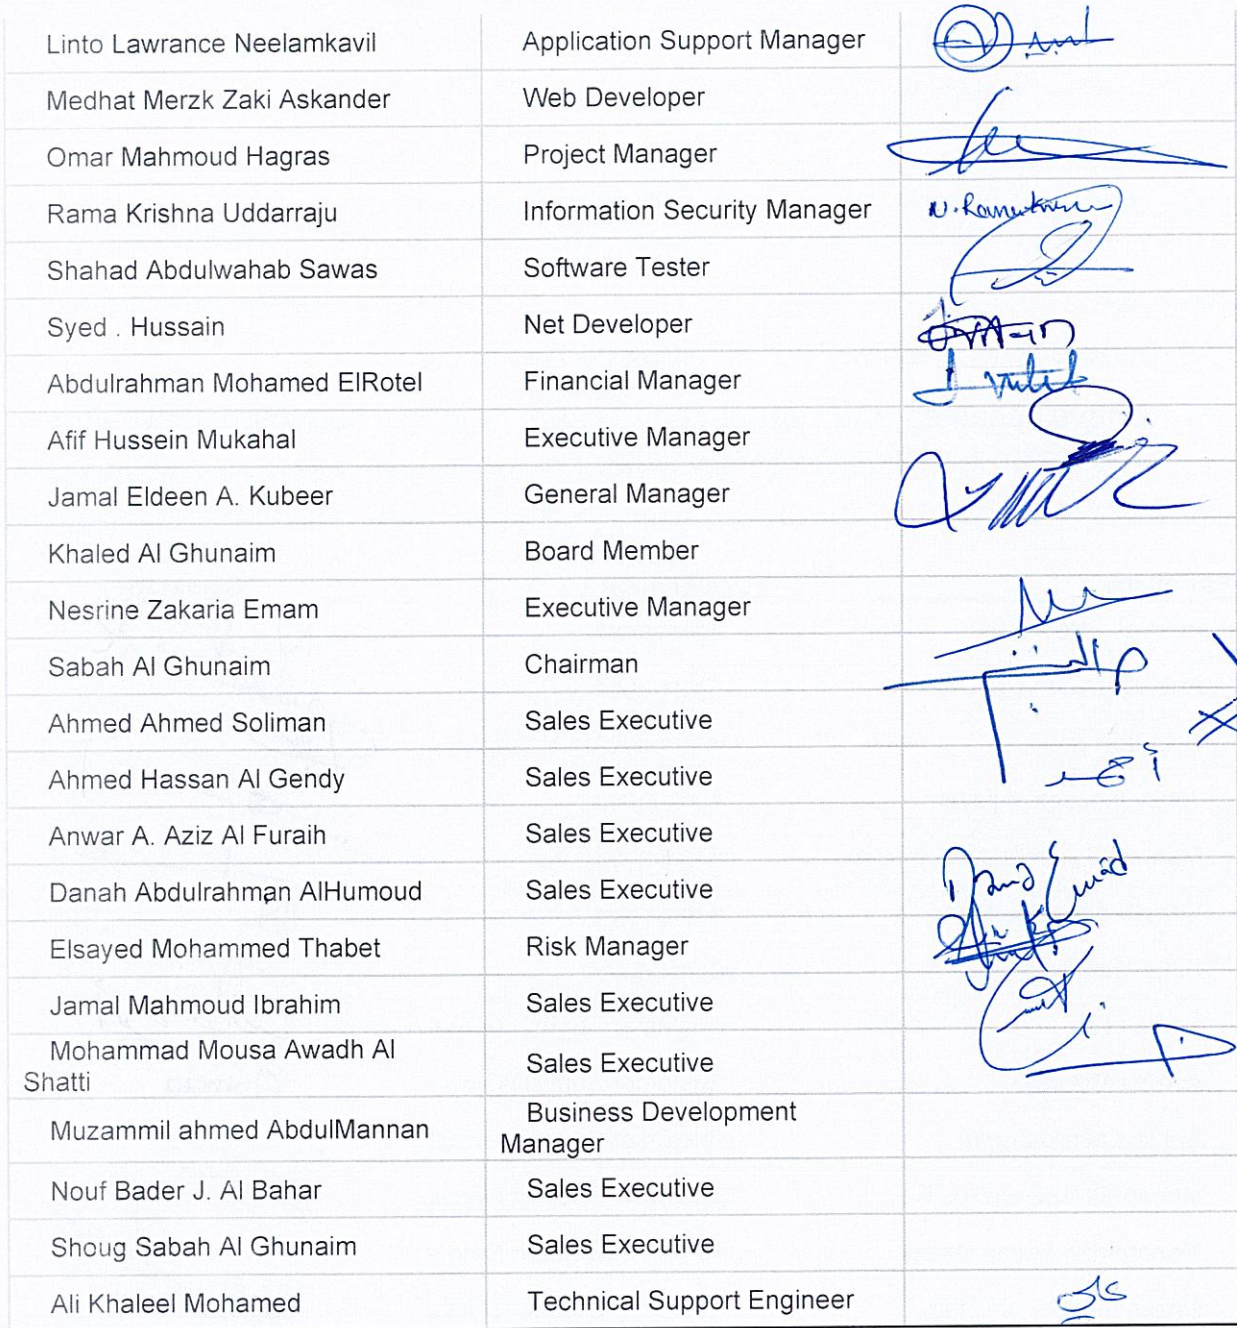 Linto Lawrance Neelamkavil Application Support Manager
Medhat Merzk Zaki Askander Web Developer
Omar Mahmoud Hagras Project Manager
Rama Krishna Uddarraju Information Security Manager
Shahad Abdulwahab Sawas Software Tester
Syed . Hussain Net Developer
Abdulrahman Mohamed ElRotel Financial Manager
Afif Hussein Mukahal Executive Manager
Jamal Eldeen A. Kubeer General Manager
Khaled Al Ghunaim Board Member
Nesrine Zakaria Emam Executive Manager
Sabah Al Ghunaim Chairman
Ahmed Ahmed Soliman Sales Executive
Ahmed Hassan Al Gendy Sales Executive
أحمد
Anwar A. Aziz Al Furaih Sales Executive
Danah Abdulrahman AlHumoud Sales Executive
Elsayed Mohammed Thabet Risk Manager
Jamal Mahmoud Ibrahim Sales Executive
Mohammad Mousa Awadh Al
Shatti
Sales Executive
Muzammil ahmed AbdulMannan
Business Development
Manager
Nouf Bader J. Al Bahar Sales Executive
Shoug Sabah Al Ghunaim Sales Executive
Ali Khaleel Mohamed Technical Support Engineer